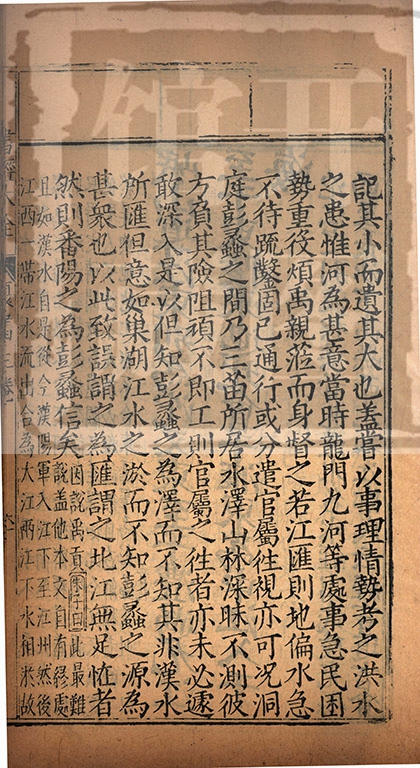 記其小而遺其大也蓋嘗以事理情勢考之洪水
之患惟河為甚意當時龍門九河等處事急民困
勢重役煩禹親蒞而身督之若江匯則地偏水急
不待疏鑿固已通行或分遣官屬徃視亦可况洞
庭彭蠡之間乃三苗所居水澤山林深昧不測彼
方負其險阻頑不即工則官屬之徃者亦未必遽
敢深入是以但知彭蠡之為澤而不知其非漢水
所匯但意如巢湖江水之淤而不知彭蠡之源為
甚衆也以此致誤謂之為匯謂之北江無足怪者
然則番陽之為彭蠡信矣
因説禹貢曰此最難
説蓋他本文自有終處
且如漢水自是從今漢陽軍入江下至江州然後
江西一帶江水流出合為大江兩江下水相淤故
書經大全